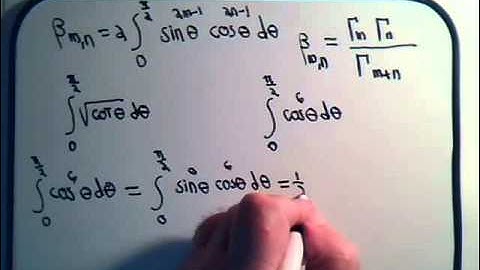 β_{m,n} = 2 ∫_0^{π/2} sin^{2m-1}θ cos^{2n-1}θ dθ
β_{m,n} = Γ_m Γ_n / Γ_{m+n}
∫_0^{π/2} √cotθ dθ
∫_0^{π/2} cos^6θ dθ
∫_0^{π/2} cos^6θ dθ = ∫_0^{π/2} sin^0θ cos^6θ dθ = 1/2